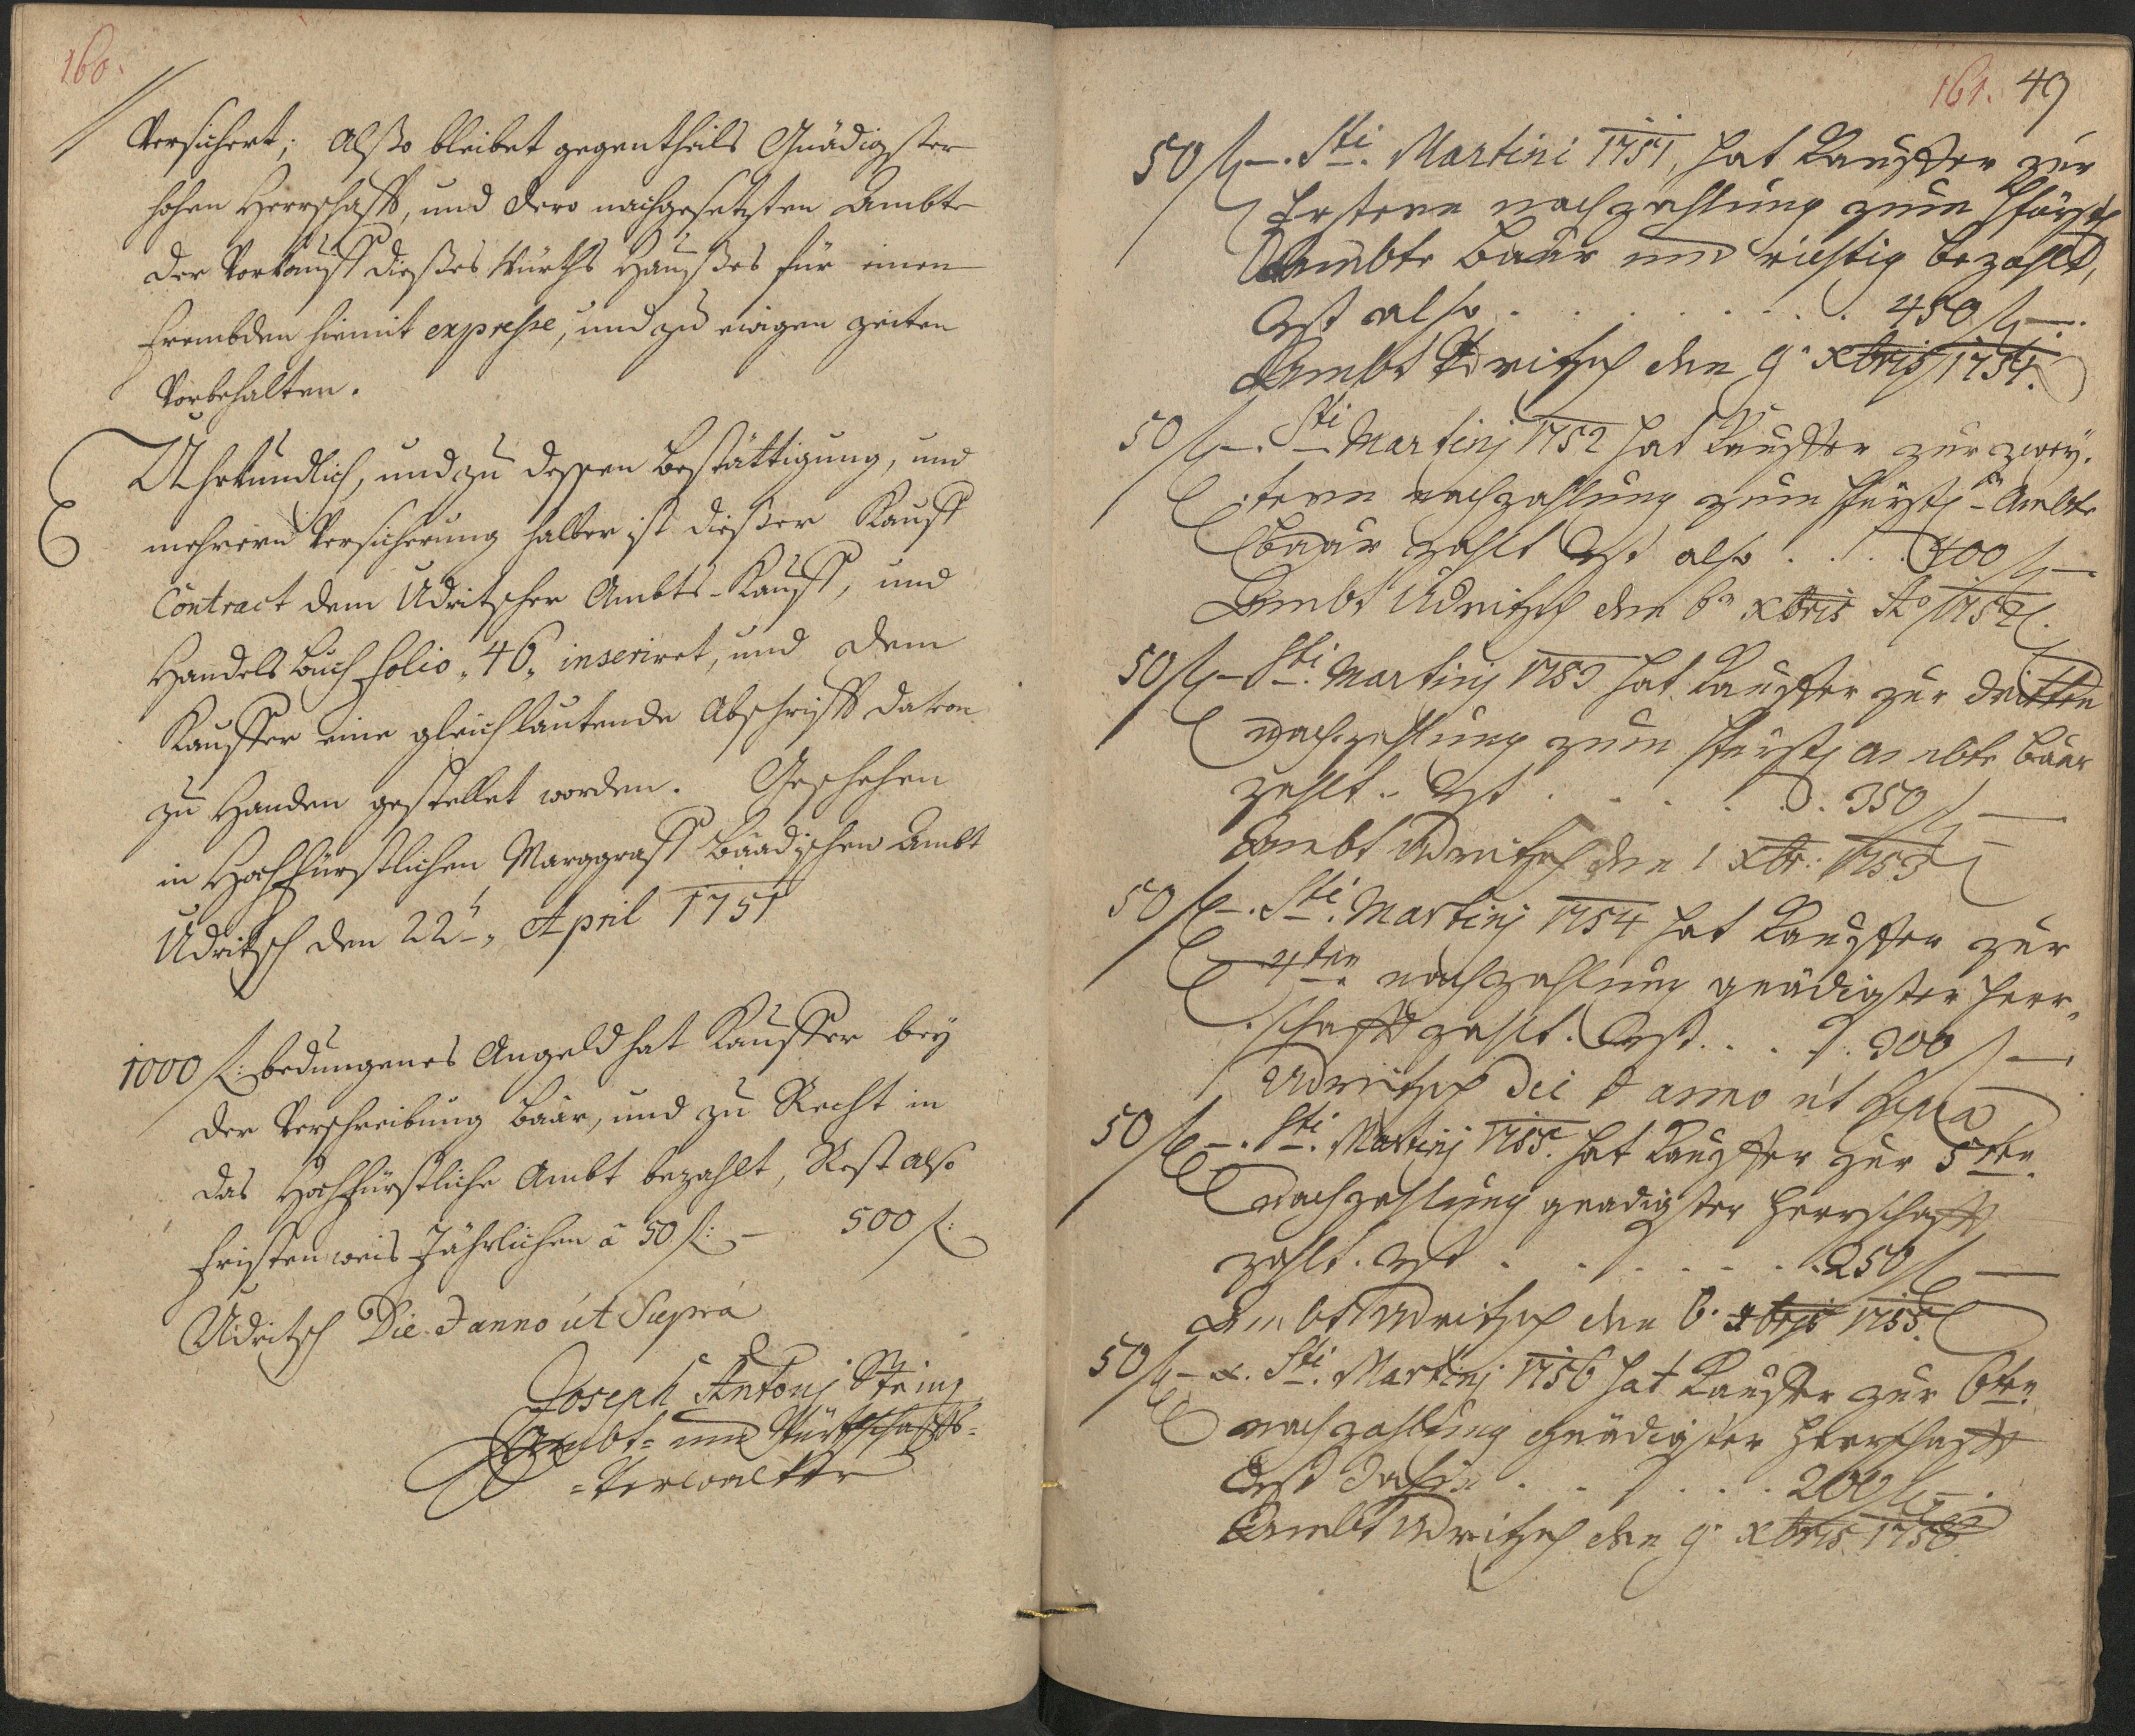 160.
Versichert; Alßo bleibet gegentheils Gnädigster
hohen Herrschafft, und dero nachgesetzten Ambte
der Vorkauff dießes Würths Haußes für einen
frembden hiemit expresse, und zu ewigen zeiten
Vorbehalten.
Uhrkundlich, und zu dessen Bestättigung, und
mehrern Versicherung halber ist dießer Kauff
Contract dem Udritscher Ambts-Kauff, und
Handels Buch folio „46„ inseriret, und dem
Kauffer eine gleichlautende Abschrifft darvon
zu Handen gestellet worden. Geschehen
in Hochfürstlichen Marggraff Baadischen Ambt
Udritsch den 22t„ April 1751
1000 f: bedungenes Angeld hat Kauffer bey
der Verschreibung baar, und zu Recht in
das Hochfürstliche Ambt bezahlt, Rest also
fristen weis Jährlichen â 50 f: — 500 f:
Udritsch Die & anno ut Supra
Joseph Antoni
Ambt= und Würthschaffts=
=Verwalter
161. 49
50 f —. Sti. Martini 1751, hat Kauffer zur
Erstern nachzahlung zum Fürstl
Ambte baar und richtig bezahlt,
Rst also . . . . . . . . 450 f —.
Ambt Udritsch den 9. Xbris 1751.
50 f —. Sti Martinj 1752 hat Kauffer zur zwey-
tern nachzahlung zum Fürstl-n Ambte
baar zahlt Rst also . . . . 400 f —
Ambt Udritsch den 6n Xbris Ao 1752.
50 f — Sti. Martinj 1753 hat Kauffer zur dritten
nachzahlung zum Fürstl ambte baar
zahlt. Rst . . . . . . 350 f —
Ambt Udritsch den 1 Xbr: 1753
50 f —. Sti. Martinj 1754 hat Kauffer zur
4ten nachzahlung gnädigster Herr„
schafft zahlt. Rst . . . . 300 f —
Udritsch Dei & anno ut Supra
50 f —. Sti. Martinj 1755. hat Kauffer zur 5ten.
Nachzahlung gnadigster Herrschafft
zahlt. Rst . . . . . . . 250 f —
Ambt Udritsch den 6. Xbris 1755.
50 f — Sti. Martinj 1756 hat Kauffer zur 6ten.
nachzahlung Gnädigster Herrschafft
Rst . . . . . . 200 f —.
Ambt Udritsch den 9. Xbris 1756